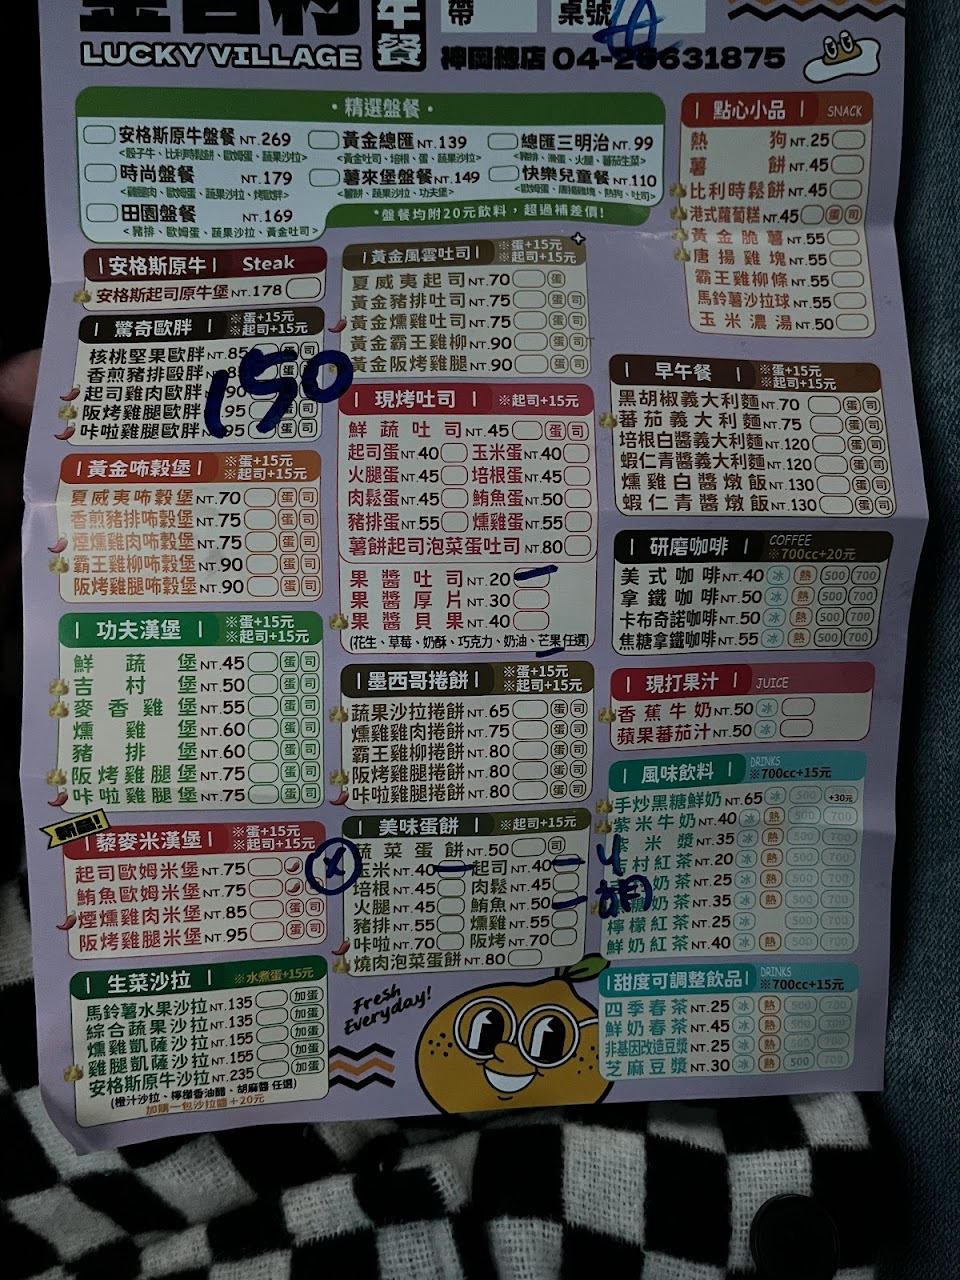 金吉村
年餐
帶
桌號
LUCKY VILLAGE
神岡總店 04-25631875
·精選盤餐·
安格斯原牛盤餐 NT.269
黃金總匯 NT.139
<黃金吐司、培根、蛋、蔬果沙拉>
總匯三明治 NT.99
時尚盤餐 NT.179
薯來堡盤餐 NT.149
<薯餅、蔬果沙拉、功夫堡>
快樂兒童餐 NT.110
田園盤餐 NT.169
<豬排、歐姆蛋、蔬果沙拉、黃金吐司>
*盤餐均附20元飲料，超過補差價!
點心小品 SNACK
熱狗 NT.25
薯餅 NT.45
比利時鬆餅 NT.45
港式蘿蔔糕 NT.45 蛋 司
黃金脆薯 NT.55
唐揚雞塊 NT.55
霸王雞柳條 NT.55
馬鈴薯沙拉球 NT.55
玉米濃湯 NT.50
安格斯原牛 Steak
安格斯起司原牛堡 NT.178
驚奇歐胖 ※蛋+15元 ※起司+15元
核桃堅果歐胖 NT.85 蛋 司
香煎豬排歐胖
起司雞肉歐胖
阪烤雞腿歐胖 95
咔啦雞腿歐胖 NT.95 蛋 司
150
黃金布穀堡 ※蛋+15元 ※起司+15元
夏威夷布穀堡 NT.70 蛋 司
香煎豬排布穀堡 NT.75 蛋 司
煙燻雞肉布穀堡 NT.75 蛋 司
霸王雞柳布穀堡 NT.90 蛋 司
阪烤雞腿布穀堡 NT.90 蛋 司
功夫漢堡 ※蛋+15元 ※起司+15元
鮮蔬堡 NT.45 蛋 司
吉村堡 NT.50 蛋 司
麥香雞堡 NT.55 蛋 司
燻雞堡 NT.60 蛋 司
豬排堡 NT.60 蛋 司
阪烤雞腿堡 NT.75 蛋 司
咔啦雞腿堡 NT.75 蛋 司
新品!
藜麥米漢堡 ※蛋+15元 ※起司+15元
起司歐姆米堡 NT.75
鮪魚歐姆米堡 NT.75
煙燻雞肉米堡 NT.85 蛋 司
阪烤雞腿米堡 NT.95
生菜沙拉 ※水煮蛋+15元
馬鈴薯水果沙拉 NT.135 加蛋
綜合蔬果沙拉 NT.135 加蛋
燻雞凱薩沙拉 NT.155 加蛋
雞腿凱薩沙拉 NT.155 加蛋
安格斯原牛沙拉 NT.235 加蛋
(橙汁沙拉、檸檬香油醋、胡麻醬 任選)
加購一包沙拉醬+20元
黃金風雲吐司 ※蛋+15元 ※起司+15元
夏威夷起司 NT.70 蛋
黃金豬排吐司 NT.75 蛋 司
黃金燻雞吐司 NT.75 蛋 司
黃金霸王雞柳 NT.90 蛋 司
黃金阪烤雞腿 NT.90 蛋 司
現烤吐司 ※起司+15元
鮮蔬吐司 NT.45 蛋 司
起司蛋 NT.40 玉米蛋 NT.40
火腿蛋 NT.45 培根蛋 NT.45
肉鬆蛋 NT.45 鮪魚蛋 NT.50
豬排蛋 NT.55 燻雞蛋 NT.55
薯餅起司泡菜蛋吐司 NT.80
果醬吐司 NT.20
果醬厚片 NT.30
果醬貝果 NT.40
(花生、草莓、奶酥、巧克力、奶油、芒果 任選)
墨西哥捲餅 ※蛋+15元 ※起司+15元
蔬果沙拉捲餅 NT.65 蛋 司
燻雞雞肉捲餅 NT.75 蛋 司
霸王雞柳捲餅 NT.80 蛋 司
阪烤雞腿捲餅 NT.80 蛋 司
咔啦雞腿捲餅 NT.80 蛋 司
美味蛋餅 ※起司+15元
蔬菜蛋餅 NT.50 司
玉米 NT.40 起司 NT.40
培根 NT.45 肉鬆 NT.45
火腿 NT.45 鮪魚 NT.50
豬排 NT.55 燻雞 NT.55
咔啦 NT.70 阪烤 NT.70
燒肉泡菜蛋餅 NT.80
Fresh Everyday!
早午餐 ※蛋+15元 ※起司+15元
黑胡椒義大利麵 NT.70 蛋 司
蕃茄義大利麵 NT.75 蛋 司
培根白醬義大利麵 NT.120 蛋 司
蝦仁青醬義大利麵 NT.120 蛋 司
燻雞白醬燉飯 NT.130 蛋 司
蝦仁青醬燉飯 NT.130 蛋 司
研磨咖啡 COFFEE ※700cc+20元
美式咖啡 NT.40 冰 熱 500 700
拿鐵咖啡 NT.50 冰 熱 500 700
卡布奇諾咖啡 NT.50 冰 熱 500 700
焦糖拿鐵咖啡 NT.55 冰 熱 500 700
現打果汁 JUICE
香蕉牛奶 NT.50 冰
蘋果蕃茄汁 NT.50 冰
風味飲料 DRINKS ※700cc+15元
手炒黑糖鮮奶 NT.65 冰 500 +30元
紫米牛奶 NT.40 冰 熱 500 700
紫米漿 NT.35 冰 熱 500 700
吉村紅茶 NT.20 冰 熱 500 700
奶茶 NT.25 冰 熱 500 700
奶茶 NT.35 冰 熱 500 700
檸檬紅茶 NT.25 冰 500 700
鮮奶紅茶 NT.40 冰 熱 500 700
甜度可調整飲品 DRINKS ※700cc+15元
四季春茶 NT.25 冰 熱 500 700
鮮奶春茶 NT.45 冰 熱 500 700
非基因改造豆漿 NT.25 冰 熱 500 700
芝麻豆漿 NT.30 冰 熱 500 700